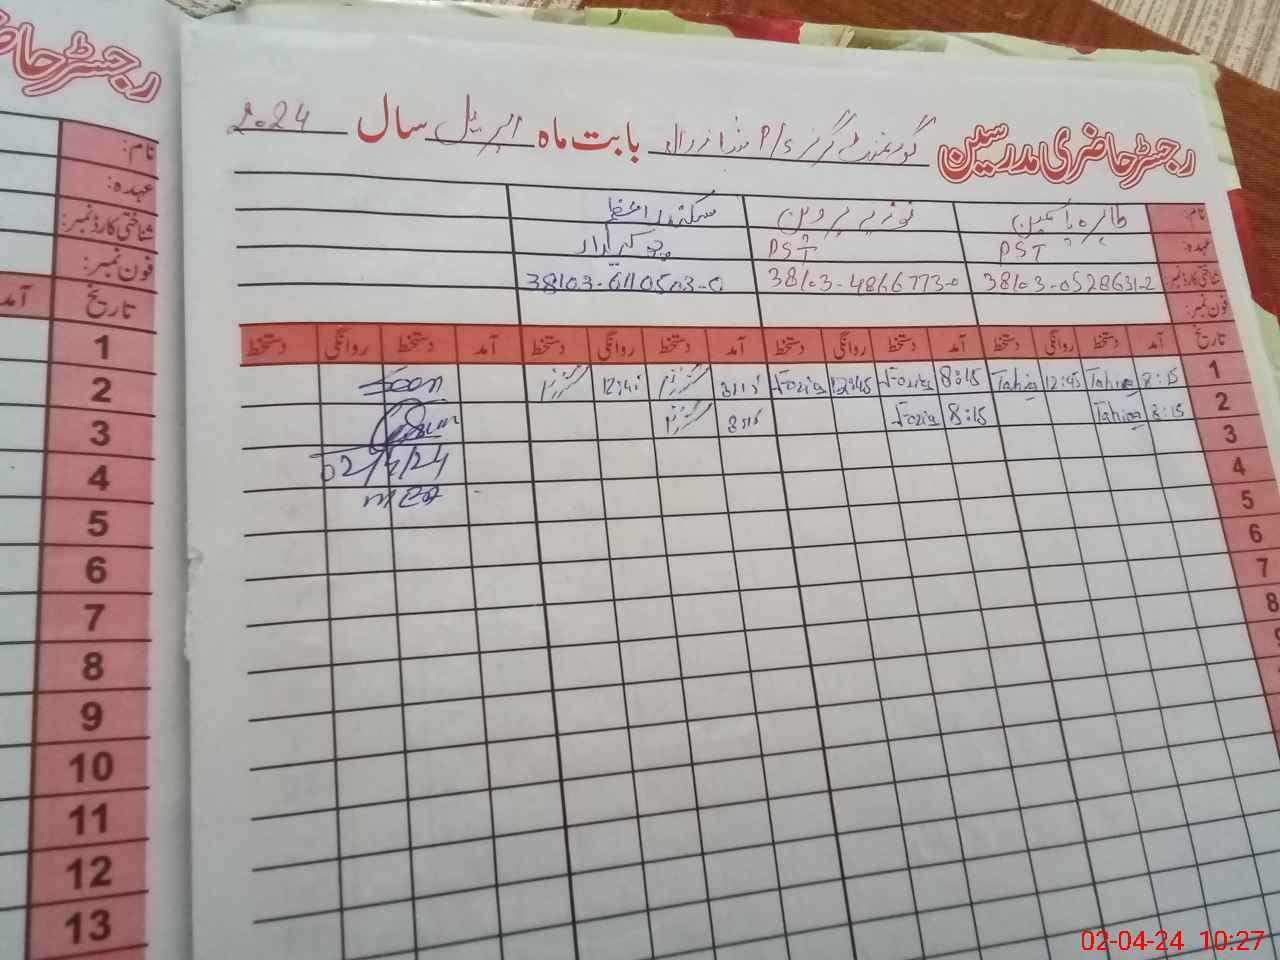 رجسٹر حاضری مدرسین گورنمنٹ گرلز P/S بابت ماہ اپریل سال 2024
نام: طاہرہ یاسمین فوزیہ پروین سکندر اعظم
عہدہ: PST PST چوکیدار
شناختی کارڈ نمبر: 38103-0528631-2 38103-4866773-0 38103-6110503-0
فون نمبر:
تاریخ آمد دستخط روانگی دستخط آمد دستخط روانگی دستخط آمد دستخط روانگی دستخط آمد دستخط روانگی دستخط
1 8:15 Tahira 12:45 Tahira 8:15 Fozia 12:45 Fozia
2 8:15 Tahira 8:15 Fozia
3
4
5
6
7
8
02/4/24
رجسٹر حاضری
نام:
عہدہ:
شناختی کارڈ نمبر:
فون نمبر:
تاریخ آمد
1
2
3
4
5
6
7
8
9
10
11
12
13
02-04-24 10:27